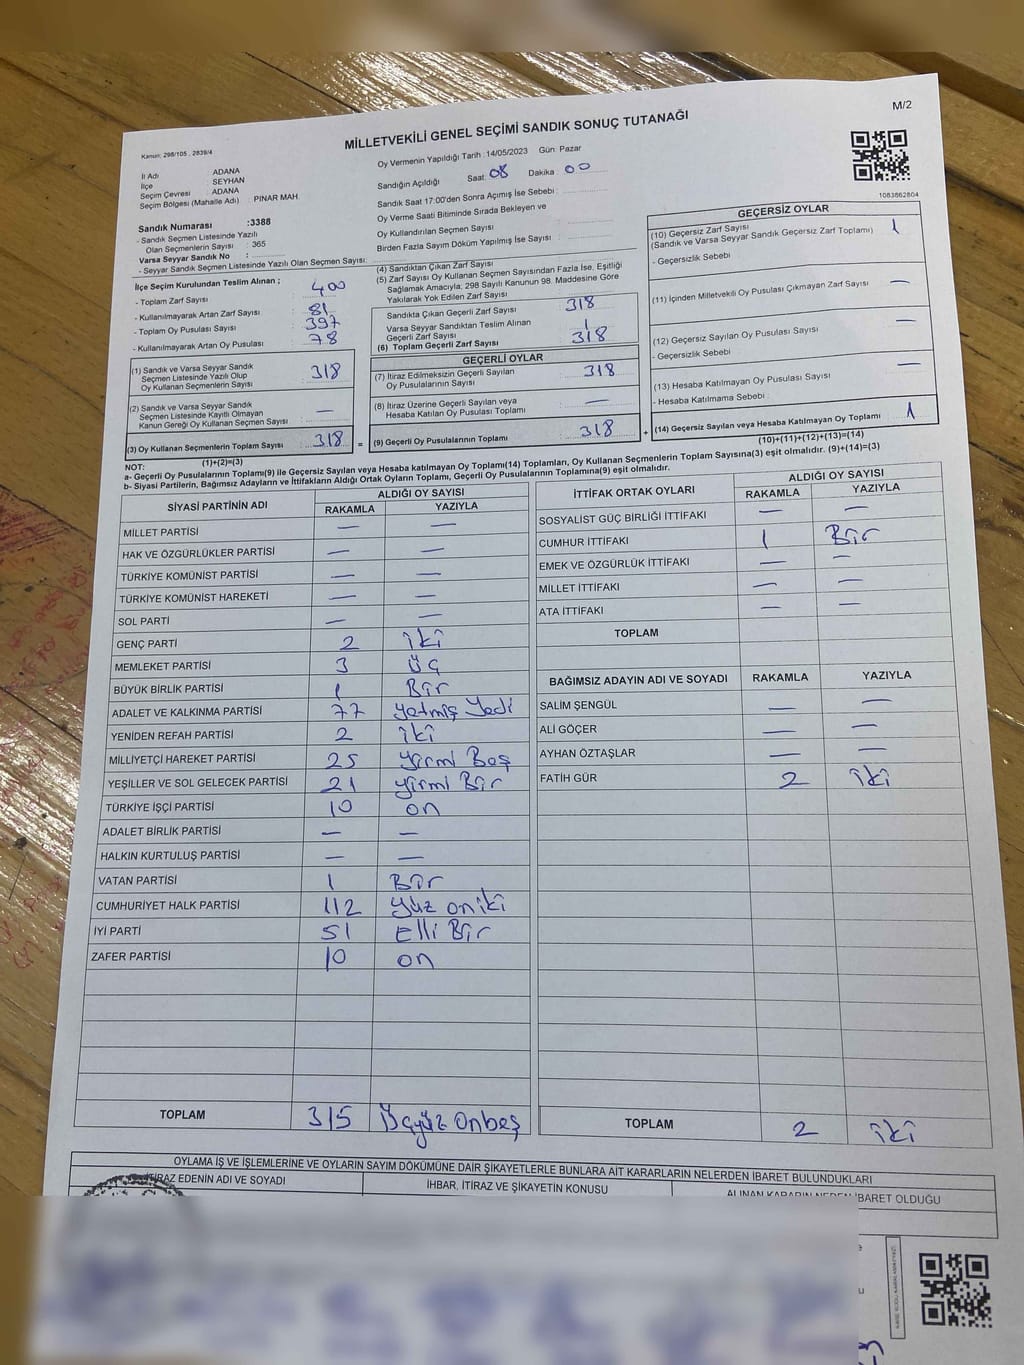 M/2
MİLLETVEKİLİ GENEL SEÇİMİ SANDIK SONUÇ TUTANAĞI
Kanun: 298/105 , 2839/4
İl Adı ADANA
İlçe SEYHAN
Seçim Çevresi : ADANA
Seçim Bölgesi (Mahalle Adı) : PINAR MAH
Sandık Numarası :3388
- Sandık Seçmen Listesinde Yazılı
Olan Seçmenlerin Sayısı : 365
Varsa Seyyar Sandık No :
- Seyyar Sandık Seçmen Listesinde Yazılı Olan Seçmen Sayısı:
Oy Vermenin Yapıldığı Tarih :14/05/2023 Gün: Pazar
Sandığın Açıldığı Saat: 08 Dakika : 00
Sandık Saat 17:00'den Sonra Açımış İse Sebebi :
Oy Verme Saati Bitiminde Sırada Bekleyen ve
Oy Kullandırılan Seçmen Sayısı :
Birden Fazla Sayım Döküm Yapılmış İse Sayısı :
1083862804
İlçe Seçim Kurulundan Teslim Alınan ;
- Toplam Zarf Sayısı : 400
- Kullanılmayarak Artan Zarf Sayısı : 81
- Toplam Oy Pusulası Sayısı : 397
- Kullanılmayarak Artan Oy Pusulası : 78
(1) Sandık ve Varsa Seyyar Sandık
Seçmen Listesinde Yazılı Olup
Oy Kullanan Seçmenlerin Sayısı : 318
(2) Sandık ve Varsa Seyyar Sandık
Seçmen Listesinde Kayıtlı Olmayan
Kanun Gereği Oy Kullanan Seçmen Sayısı : —
(3) Oy Kullanan Seçmenlerin Toplam Sayısı : 318 =
(1)+(2)=(3)
(4) Sandıktan Çıkan Zarf Sayısı :
(5) Zarf Sayısı Oy Kullanan Seçmen Sayısından Fazla İse, Eşitliği
Sağlamak Amacıyla, 298 Sayılı Kanunun 98. Maddesine Göre
Yakılarak Yok Edilen Zarf Sayısı :
Sandıkta Çıkan Geçerli Zarf Sayısı : 318
Varsa Seyyar Sandıktan Teslim Alınan
Geçerli Zarf Sayısı :
(6) Toplam Geçerli Zarf Sayısı : 318
GEÇERLİ OYLAR
(7) İtiraz Edilmeksizin Geçerli Sayılan
Oy Pusulalarının Sayısı : 318
(8) İtiraz Üzerine Geçerli Sayılan veya
Hesaba Katılan Oy Pusulası Toplamı : —
(9) Geçerli Oy Pusulalarının Toplamı : 318 +
GEÇERSİZ OYLAR
(10) Geçersiz Zarf Sayısı 1
(Sandık ve Varsa Seyyar Sandık Geçersiz Zarf Toplamı)
- Geçersizlik Sebebi
(11) İçinden Milletvekili Oy Pusulası Çıkmayan Zarf Sayısı —
(12) Geçersiz Sayılan Oy Pusulası Sayısı —
- Geçersizlik Sebebi
(13) Hesaba Katılmayan Oy Pusulası Sayısı —
- Hesaba Katılmama Sebebi
(14) Geçersiz Sayılan veya Hesaba Katılmayan Oy Toplamı : 1
(10)+(11)+(12)+(13)=(14)
NOT:
a- Geçerli Oy Pusulalarının Toplamı(9) ile Geçersiz Sayılan veya Hesaba katılmayan Oy Toplamı(14) Toplamları, Oy Kullanan Seçmenlerin Toplam Sayısına(3) eşit olmalıdır. (9)+(14)=(3)
b- Siyasi Partilerin, Bağımsız Adayların ve İttifakların Aldığı Ortak Oyların Toplamı, Geçerli Oy Pusulalarının Toplamına(9) eşit olmalıdır.
SİYASİ PARTİNİN ADI ALDIĞI OY SAYISI
RAKAMLA YAZIYLA
MİLLET PARTİSİ — —
HAK VE ÖZGÜRLÜKLER PARTİSİ — —
TÜRKİYE KOMÜNİST PARTİSİ — —
TÜRKİYE KOMÜNİST HAREKETİ — —
SOL PARTİ — —
GENÇ PARTİ 2 iki
MEMLEKET PARTİSİ 3 Üç
BÜYÜK BİRLİK PARTİSİ 1 Bir
ADALET VE KALKINMA PARTİSİ 77 yetmiş Yedi
YENİDEN REFAH PARTİSİ 2 iki
MİLLİYETÇİ HAREKET PARTİSİ 25 yirmi Beş
YEŞİLLER VE SOL GELECEK PARTİSİ 21 yirmi Bir
TÜRKİYE İŞÇİ PARTİSİ 10 on
ADALET BİRLİK PARTİSİ — —
HALKIN KURTULUŞ PARTİSİ — —
VATAN PARTİSİ 1 Bir
CUMHURİYET HALK PARTİSİ 112 yüz oniki
İYİ PARTİ 51 Elli Bir
ZAFER PARTİSİ 10 on
TOPLAM 315 Üçyüz Onbeş
İTTİFAK ORTAK OYLARI ALDIĞI OY SAYISI
RAKAMLA YAZIYLA
SOSYALIST GÜÇ BİRLİĞİ İTTİFAKI — —
CUMHUR İTTİFAKI 1 Bir
EMEK VE ÖZGÜRLÜK İTTİFAKI — —
MİLLET İTTİFAKI — —
ATA İTTİFAKI — —
TOPLAM
BAĞIMSIZ ADAYIN ADI VE SOYADI RAKAMLA YAZIYLA
SALİM ŞENGÜL — —
ALİ GÖÇER — —
AYHAN ÖZTAŞLAR — —
FATİH GÜR 2 iki
TOPLAM 2 iki
OYLAMA İŞ VE İŞLEMLERİNE VE OYLARIN SAYIM DÖKÜMÜNE DAİR ŞİKAYETLERLE BUNLARA AİT KARARLARIN NELERDEN İBARET BULUNDUKLARI
İTİRAZ EDENİN ADI VE SOYADI İHBAR, İTİRAZ VE ŞİKAYETİN KONUSU ALINAN KARARIN NEDEN İBARET OLDUĞU